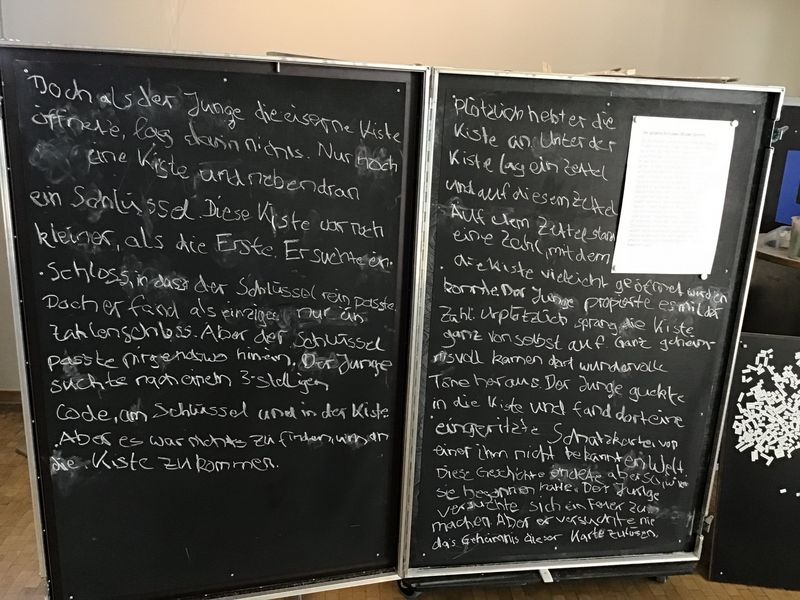 Doch als der Junge die eiserne Kiste
öffnete, lag darin nichts. Nur noch
eine Kiste und nebendran
ein Schlüssel. Diese Kiste war noch
kleiner, als die Erste. Er suchte ein
Schloss, in dass der Schlüssel rein passte.
Doch er fand als einziges nur ein
Zahlenschloss. Aber der Schlüssel
passte nirgendwo hinein. Der Junge
suchte nach einem 3-stelligen
Code, am Schlüssel und in der Kiste.
Aber es war nichts zu finden, um an
die Kiste zu kommen.
Plötzlich hebt er die
Kiste an. Unter der
Kiste lag ein Zettel
und auf diesem Zettel
Auf dem Zettel stand
eine Zahl, mit dem
die Kiste vieleicht geöffnet werden
konnte. Der Junge propierte es mit der
Zahl. Urplötzlich sprang die Kiste
ganz von selbst auf. Ganz geheim-
nisvoll kamen dort wundervolle
Töne heraus. Der Junge guckte
in die Kiste und fand dort eine
eingeritzte Schatzkarte, von
einer ihm nicht bekannten Welt.
Diese Geschichte endete aber so, wie
sie begonnen hatte. Der Junge
versuchte sich ein Feuer zu
machen. Aber er versuchte nie
das Geheimnis dieser Karte zu lösen.